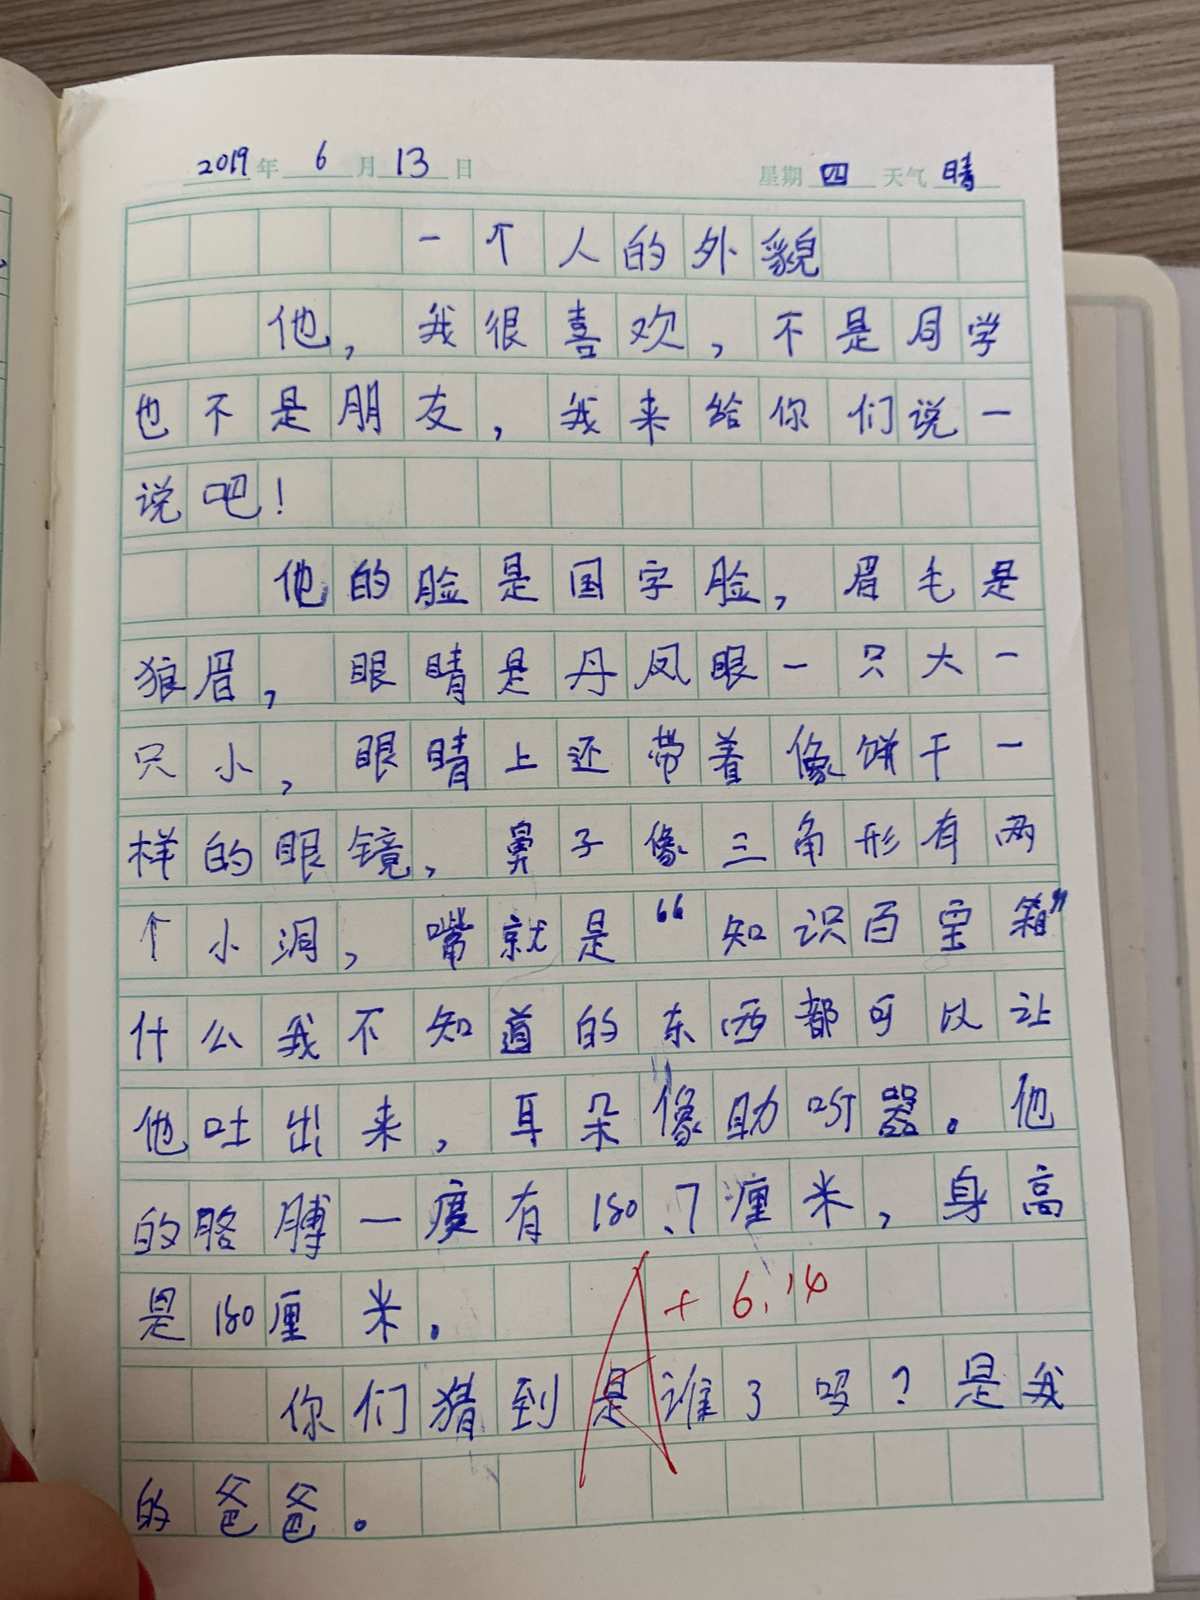 2019年 6月 13日 星期 四 天气 晴
一个人的外貌
他，我很喜欢，不是同学
也不是朋友，我来给你们说一
说吧！
他的脸是国字脸，眉毛是
狼眉，眼睛是丹凤眼一只大一
只小，眼睛上还带着像饼干一
样的眼镜，鼻子像三角形有两
个小洞，嘴就是“知识百宝箱”
什么我不知道的东西都可以让
他吐出来，耳朵像助听器。他
的胳膊一度有180.7厘米，身高
是180厘米。
A+ 6.14
你们猜到是谁了吗？是我
的爸爸。